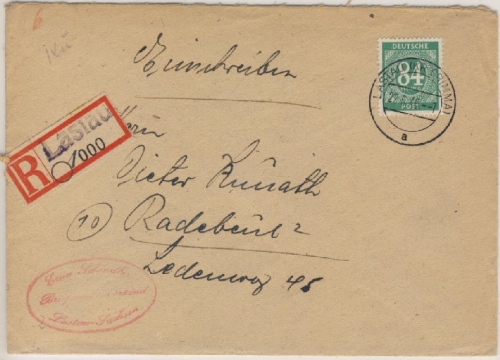 Einschreiben
DEUTSCHE
84
POST
LASTAU
a
R
Lastau
000
Herrn
Dieter Kunath
(10) Radebeul 2
Ledenweg 45
Lastau-Sachsen